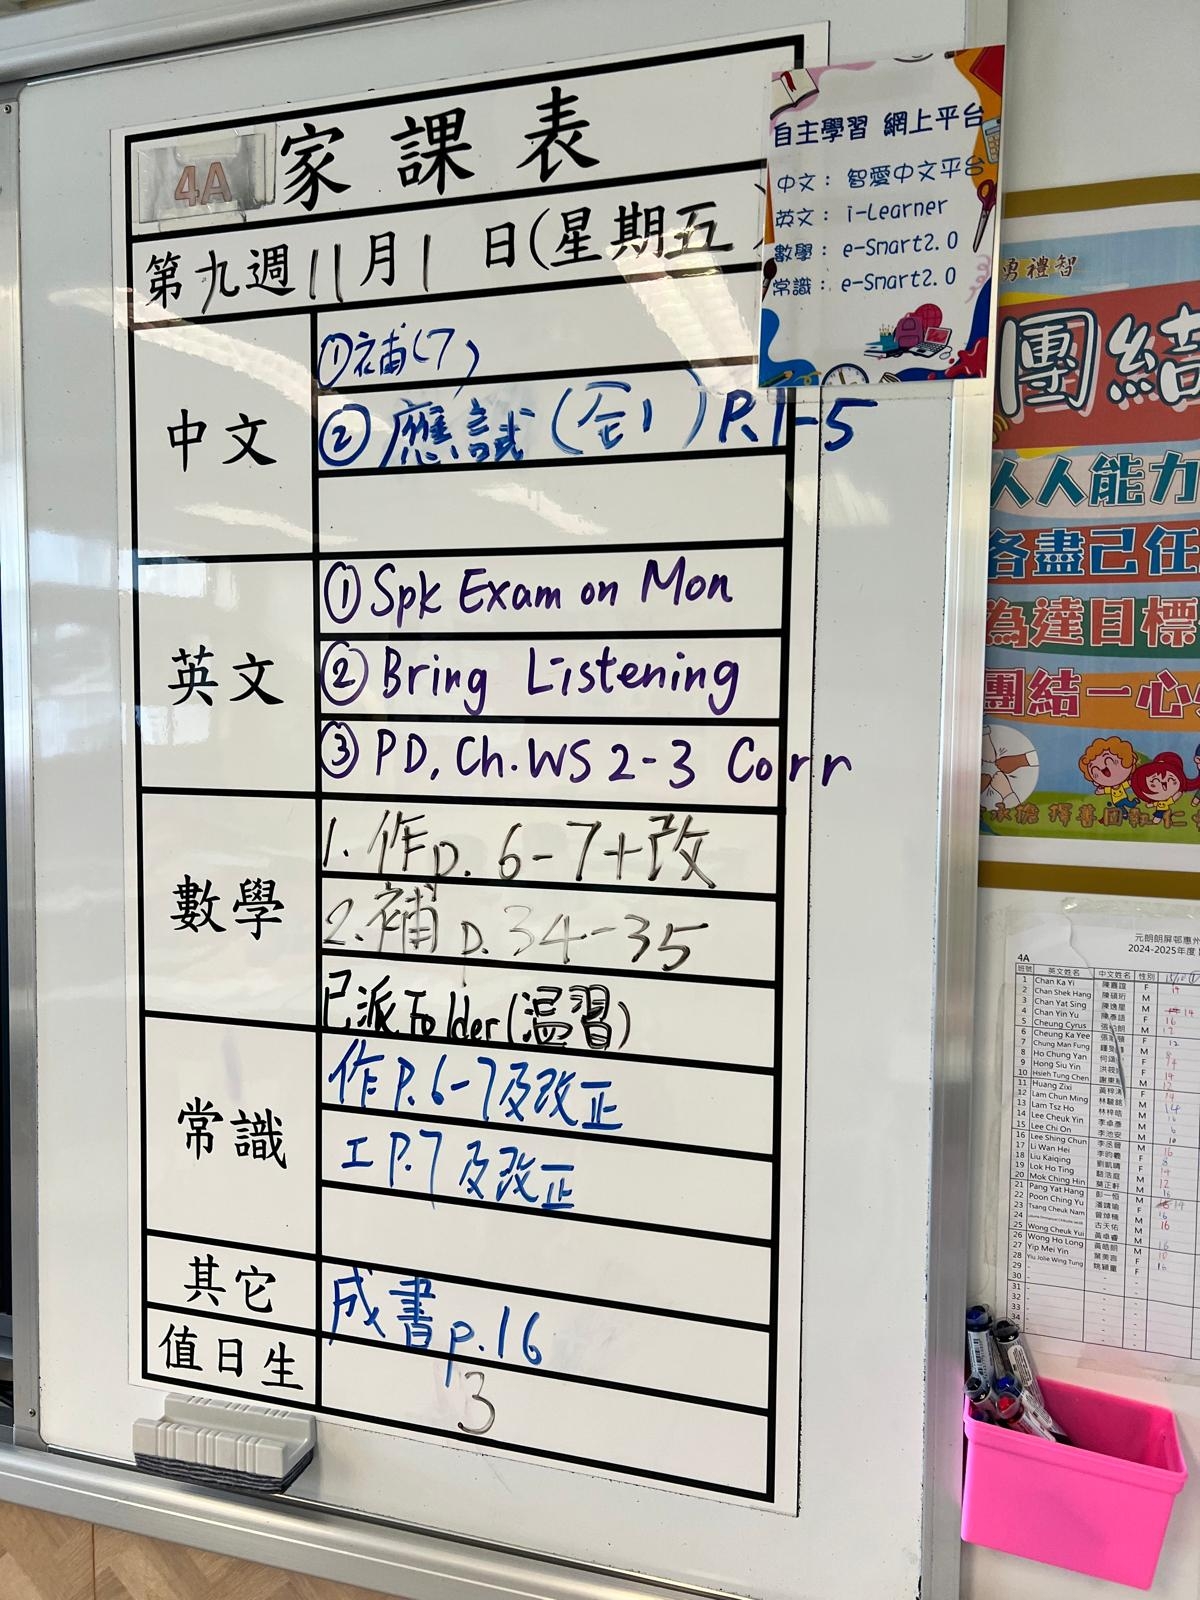 家課表
4A
第九週11月1日(星期五
中文
①補(7)
②應試(仝1)P.1-5
英文
①Spk Exam on Mon
②Bring Listening
③PD, Ch.WS 2-3 Corr
數學
1. 作p. 6-7+改
2. 補p. 34-35
已派Folder(溫習)
常識
作P.6-7及改正
工P.7及改正
其它
成書p.16
值日生
3
自主學習 網上平台
中文：智愛中文平台
英文：i-Learner
數學：e-Smart2.0
常識：e-Smart2.0
勇禮智
團結
人人能力
各盡己任
為達目標
團結一心
承擔 擇善固執 仁
元朗朗屏邨惠州
2024-2025年度
4A
班號 英文姓名 中文姓名 性別
1 Chan Ka Yi F
2 Chan Shek Hang M
3 Chan Yat Sing M
4 Chan Yin Yu F
5 Cheung Cyrus M
6 Cheung Ka Yee F
7 Chung Man Fung M
8 Ho Chung Yan
9 Hong Siu Yin F
10 Hsieh Tung Chen M
11 Huang Zixi F
12 Lam Chun Ming M
13 Lam Tsz Ho M
14 Lee Cheuk Yin M
15 Lee Chi On M
16 Lee Shing Chun M
17 Li Wan Hei M
18 Liu Kaiqing F
19 Lok Ho Ting M
20 Mok Ching Hin M
21 Pang Yat Hang M
22 Poon Ching Yu F
23 Tsang Cheuk Nam M
24
25 Wong Cheuk Yui M
26 Wong Ho Long M
27 Yip Mei Yin F
28 Yiu Jolie Wing Tung F
29
30
31
32
33
34